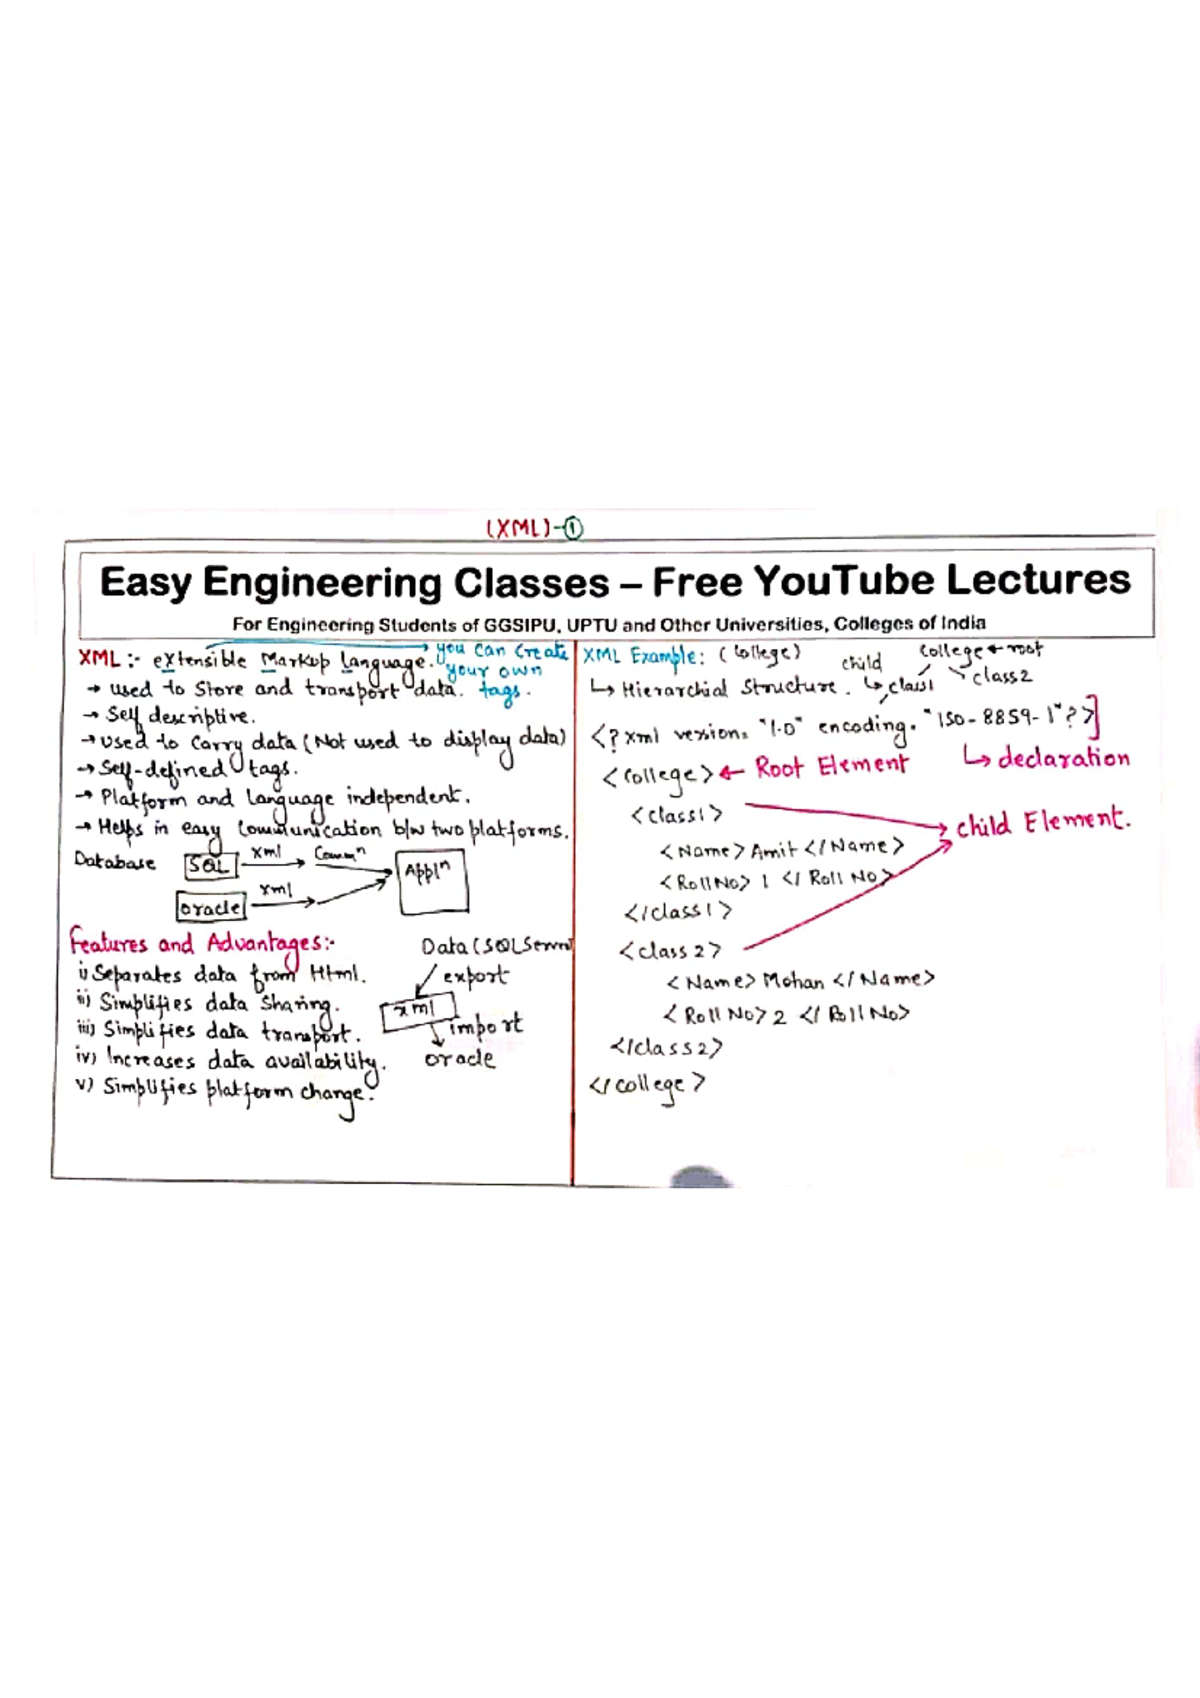 (XML)-①
Easy Engineering Classes – Free YouTube Lectures
For Engineering Students of GGSIPU, UPTU and Other Universities, Colleges of India
XML :- extensible Markup Language. → you can create your own tags.
→ used to Store and transport data.
→ Self descriptive.
→ used to carry data (Not used to display data)
→ Self-defined tags.
→ Platform and language independent.
→ Helps in easy Communication b/w two platforms.
Database SQL xml Commⁿ Applⁿ
oracle xml
Features and Advantages:-
i) Separates data from Html.
ii) Simplifies data Sharing.
iii) Simplifies data transport.
iv) Increases data availability.
v) Simplifies platform change.
Data (SQL Server)
export
xml
import
oracle
XML Example: (College)
College ← root
child
↳ Hierarchial Structure. ↳ class1 class2
<?xml version= "1.0" encoding. "ISO-8859-1"?>
↳ declaration
<College> ← Root Element
<class1>
child Element.
<Name> Amit </Name>
<Roll No> 1 </Roll No>
</class1>
<class2>
<Name> Mohan </Name>
<Roll No> 2 </Roll No>
</class2>
</college>